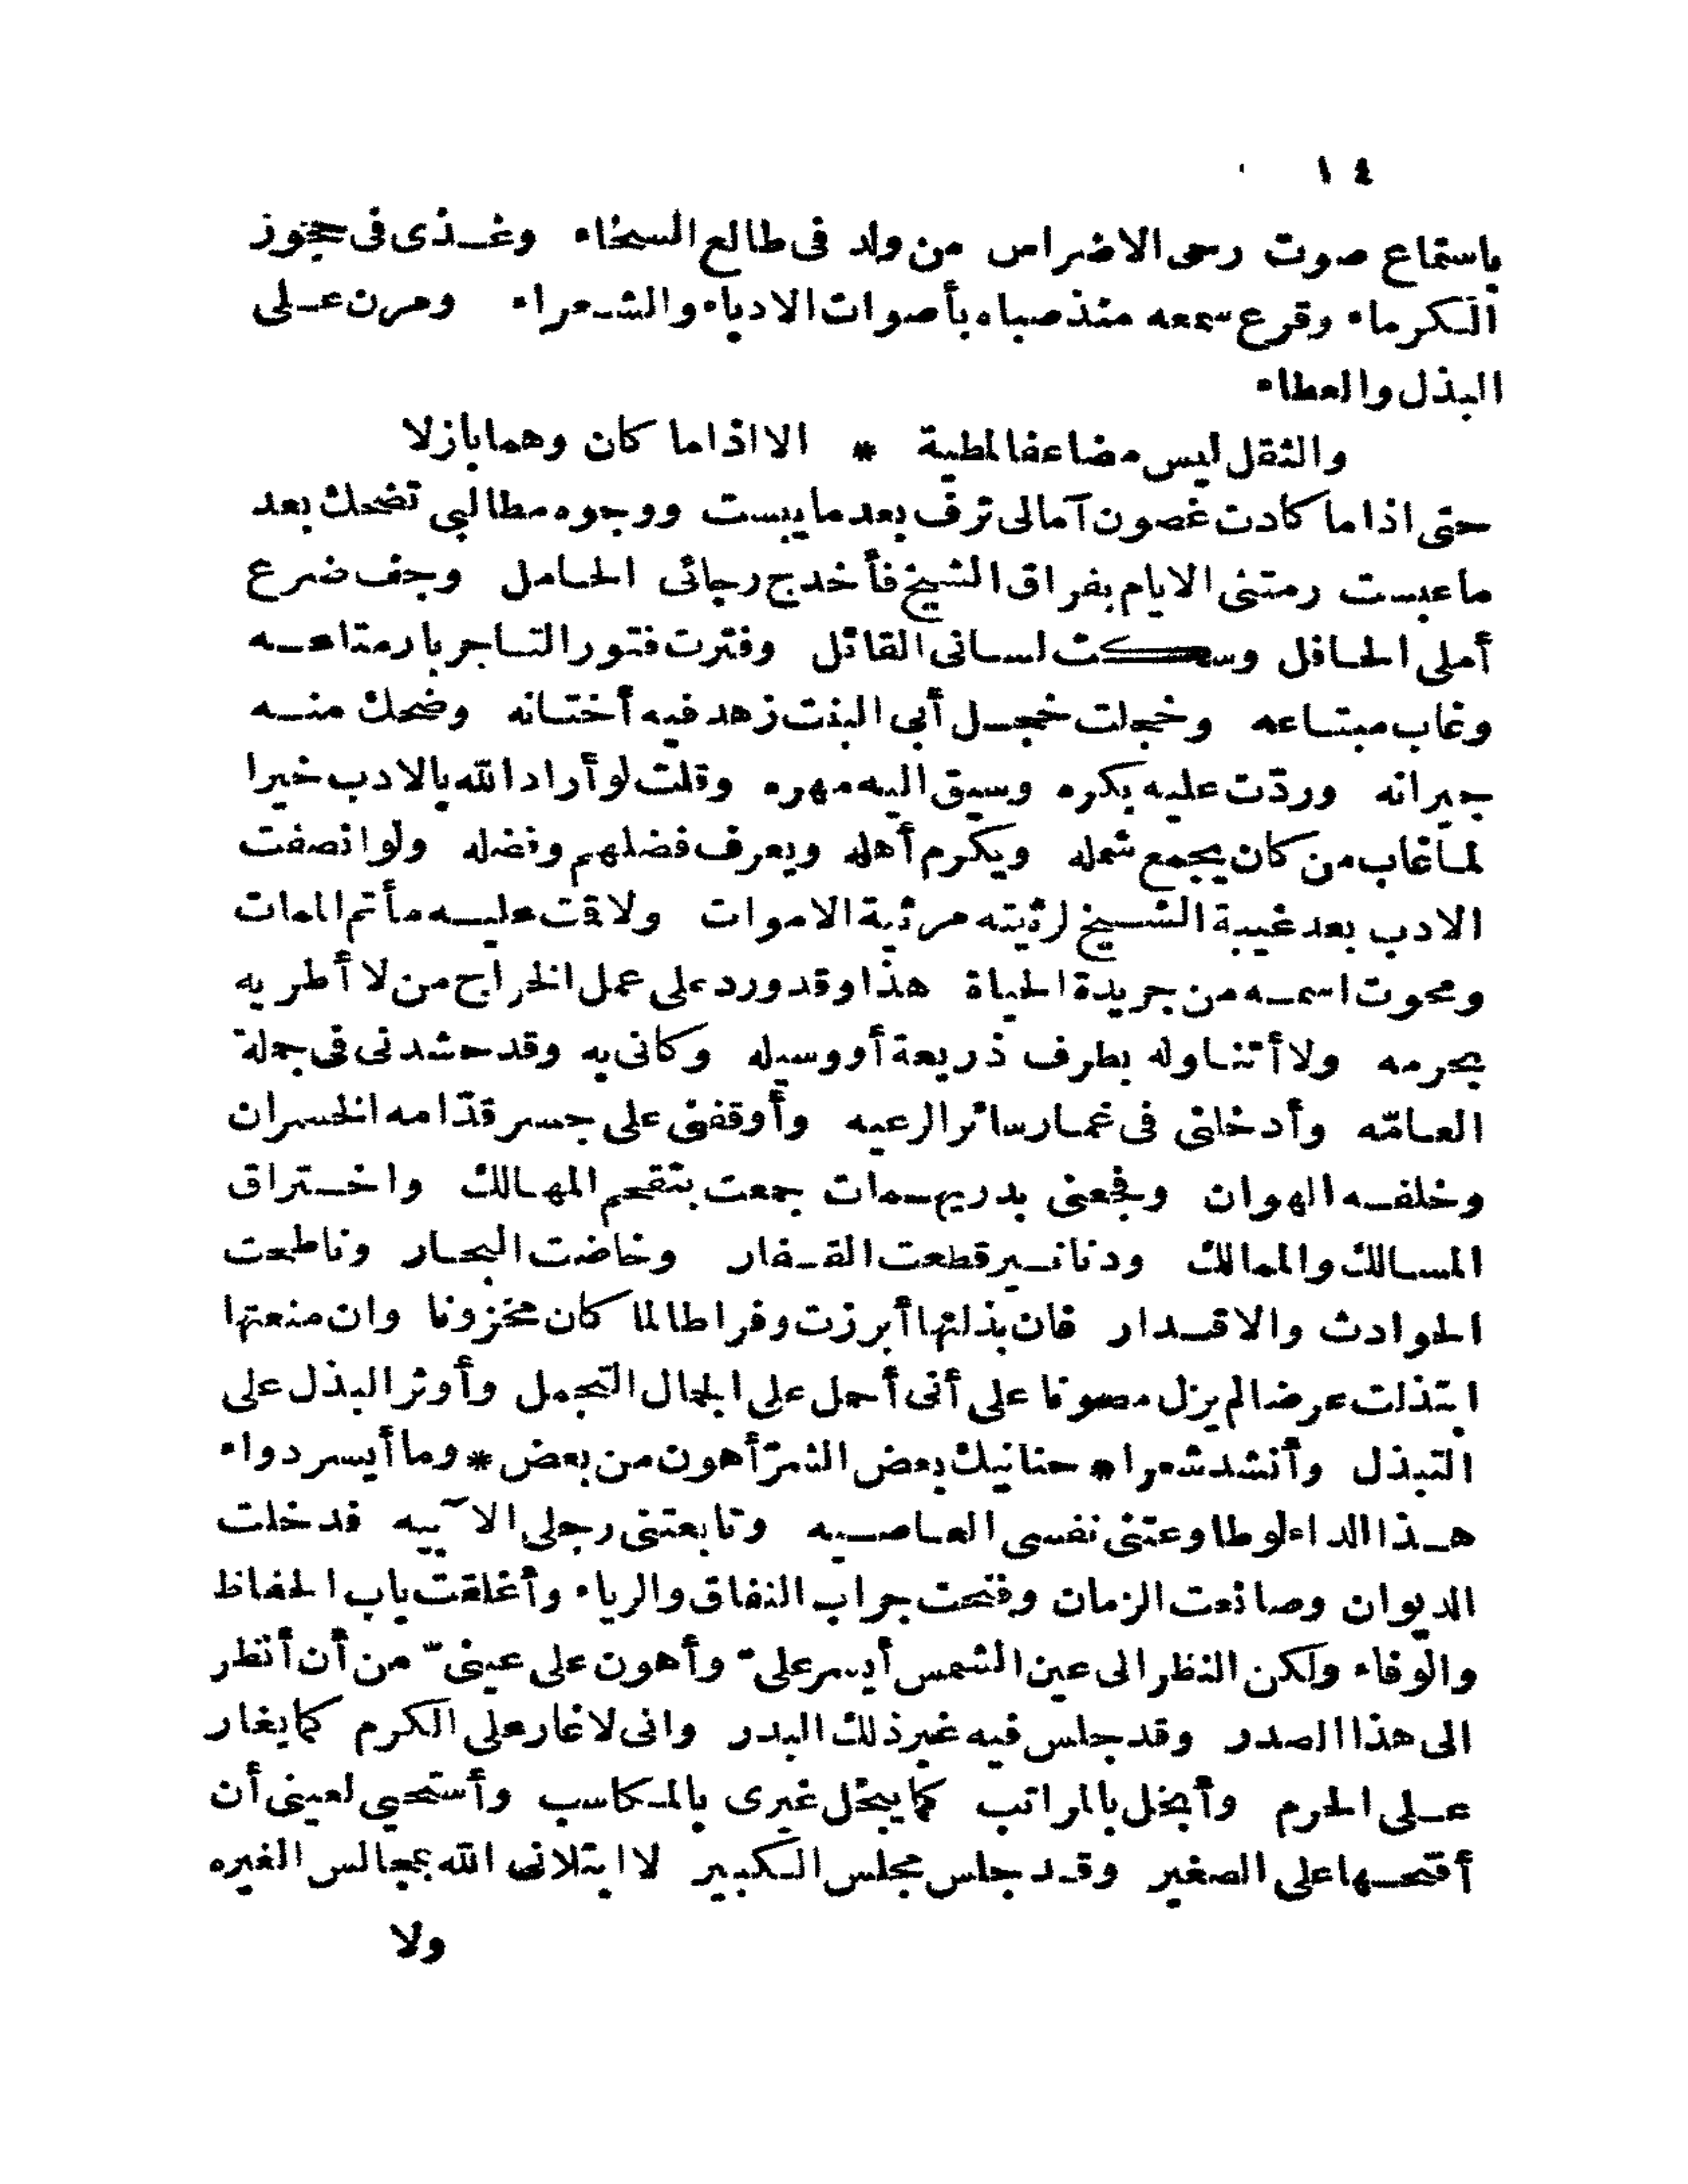 ١٤
باستماع صوت رحى الاضراس من ولد فى طالع السخاء وغذى فى حجور
الكرماء وقرع سمعه منذ صباه بأصوات الادباء والشعراء ومرن على
البذل والعطاء
والثقل ليس مضاعفا لمطية * الا اذا ما كان وهما بازلا
حتى اذا ما كادت غصون آمالى ترف بعد ما يبست ووجوه مطالبي تضحك بعد
ما عبست رمتنى الايام بفراق الشيخ فأخدج رجائى الحامل وجف ضرع
أملى الحافل وسكت لسانى القائل وفترت فتور التاجر بار متاعه
وغاب مبتاعه وخجلت خجل أبى البنت زهد فيه أختانه وضحك منه
جيرانه وردّت عليه بكره وسيق اليه مهره وقلت لو أراد الله بالادب خيرا
لما غاب من كان يجمع شمله ويكرم أهله ويعرف فضلهم وفضله ولو انصفت
الادب بعد غيبة الشيخ لرثيته مرثية الاموات ولاقت عليه مأتم الممات
ومحوت اسمه من جريدة الحياة هذا وقد ورد على عمل الخراج من لا أطر به
بحرمه ولا أتناوله بطرف ذريعة أو وسيله وكانى به وقد حشدنى فى جملة
العامّه وأدخلنى فى غمار سائر الرعيه وأوقفنى على جسر قدّامه الخسران
وخلفه الهوان وفجعنى بدريهمات جمعت بتقحم المهالك واختراق
المسالك والممالك ودنانير قطعت القفار وخاضت البحار وناطحت
الحوادث والاقدار فان بذلتها أبرزت وفرا طالما كان مخزونا وان منعتها
ابتذلت عرضا لم يزل مصونا على أنى أحمل على الجمال التجمل وأوثر البذل على
التبذل وأنشد شعرا * حنانيك بعض الشرّ أهون من بعض * وما أيسر دواء
هذا الداء لو طاوعتنى نفسى العاصيه وتابعتنى رجلى الآبيه فدخلت
الديوان وصانعت الزمان وفتحت جراب النفاق والرياء وأغلقت باب الحفاظ
والوفاء ولكن النظر الى عين الشمس أيسر علىّ وأهون على عينىّ من أن أنظر
الى هذا الصدر وقد جلس فيه غير ذلك البدر وانى لاغار على الكرم كما يغار
على الحرم وأبخل بالمراتب كما يبخل غيرى بالمكاسب وأستحيى لعينى أن
أفتحها على الصغير وقد جلس مجلس الكبير لا ابتلانى الله بمجالس الغيره
ولا